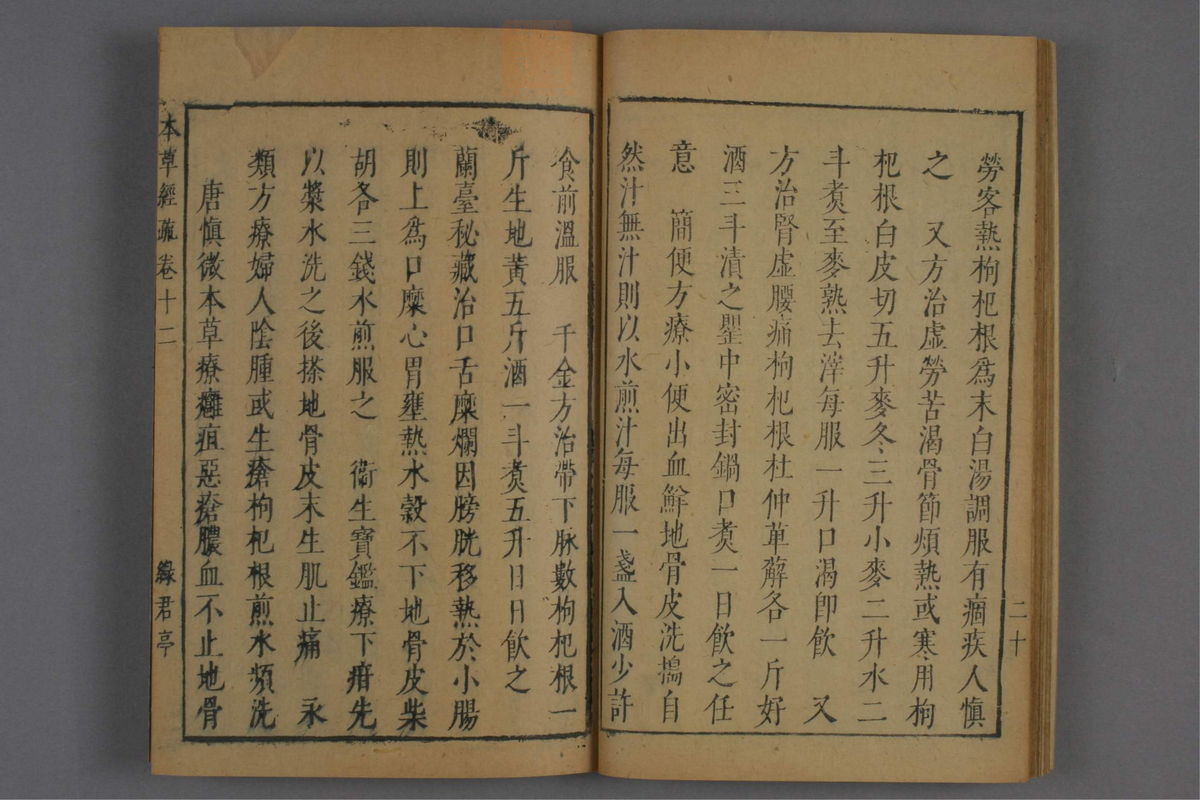 勞客熱枸杞根為末白湯調服有痼疾人慎
之　又方治虛勞苦渴骨節煩熱或寒用枸
杞根白皮切五升麥冬三升小麥二升水二
斗煑至麥熟去滓每服一升口渴卽飲　又
方治腎虛腰痛枸杞根杜仲萆薢各一斤好
酒三斗漬之罌中密封鍋口煑一日飲之任
意　簡便方療小便出血鮮地骨皮洗搗自
然汁無汁則以水煎汁每服一盞入酒少許
二十
食前溫服　千金方治帶下脉數枸杞根一
斤生地黃五斤酒一斗煑五升日日飲之
蘭臺秘藏治口舌糜爛因膀胱移熱於小腸
則上爲口糜心胃壅熱水穀不下地骨皮柴
胡各三錢水煎服之　衞生寶鑑療下疳先
以漿水洗之後搽地骨皮末生肌止痛　永
類方療婦人陰腫或生瘡枸杞根煎水頻洗
唐慎微本草療癰疽惡瘡膿血不止地骨
本草經疏卷十二
綠君亭